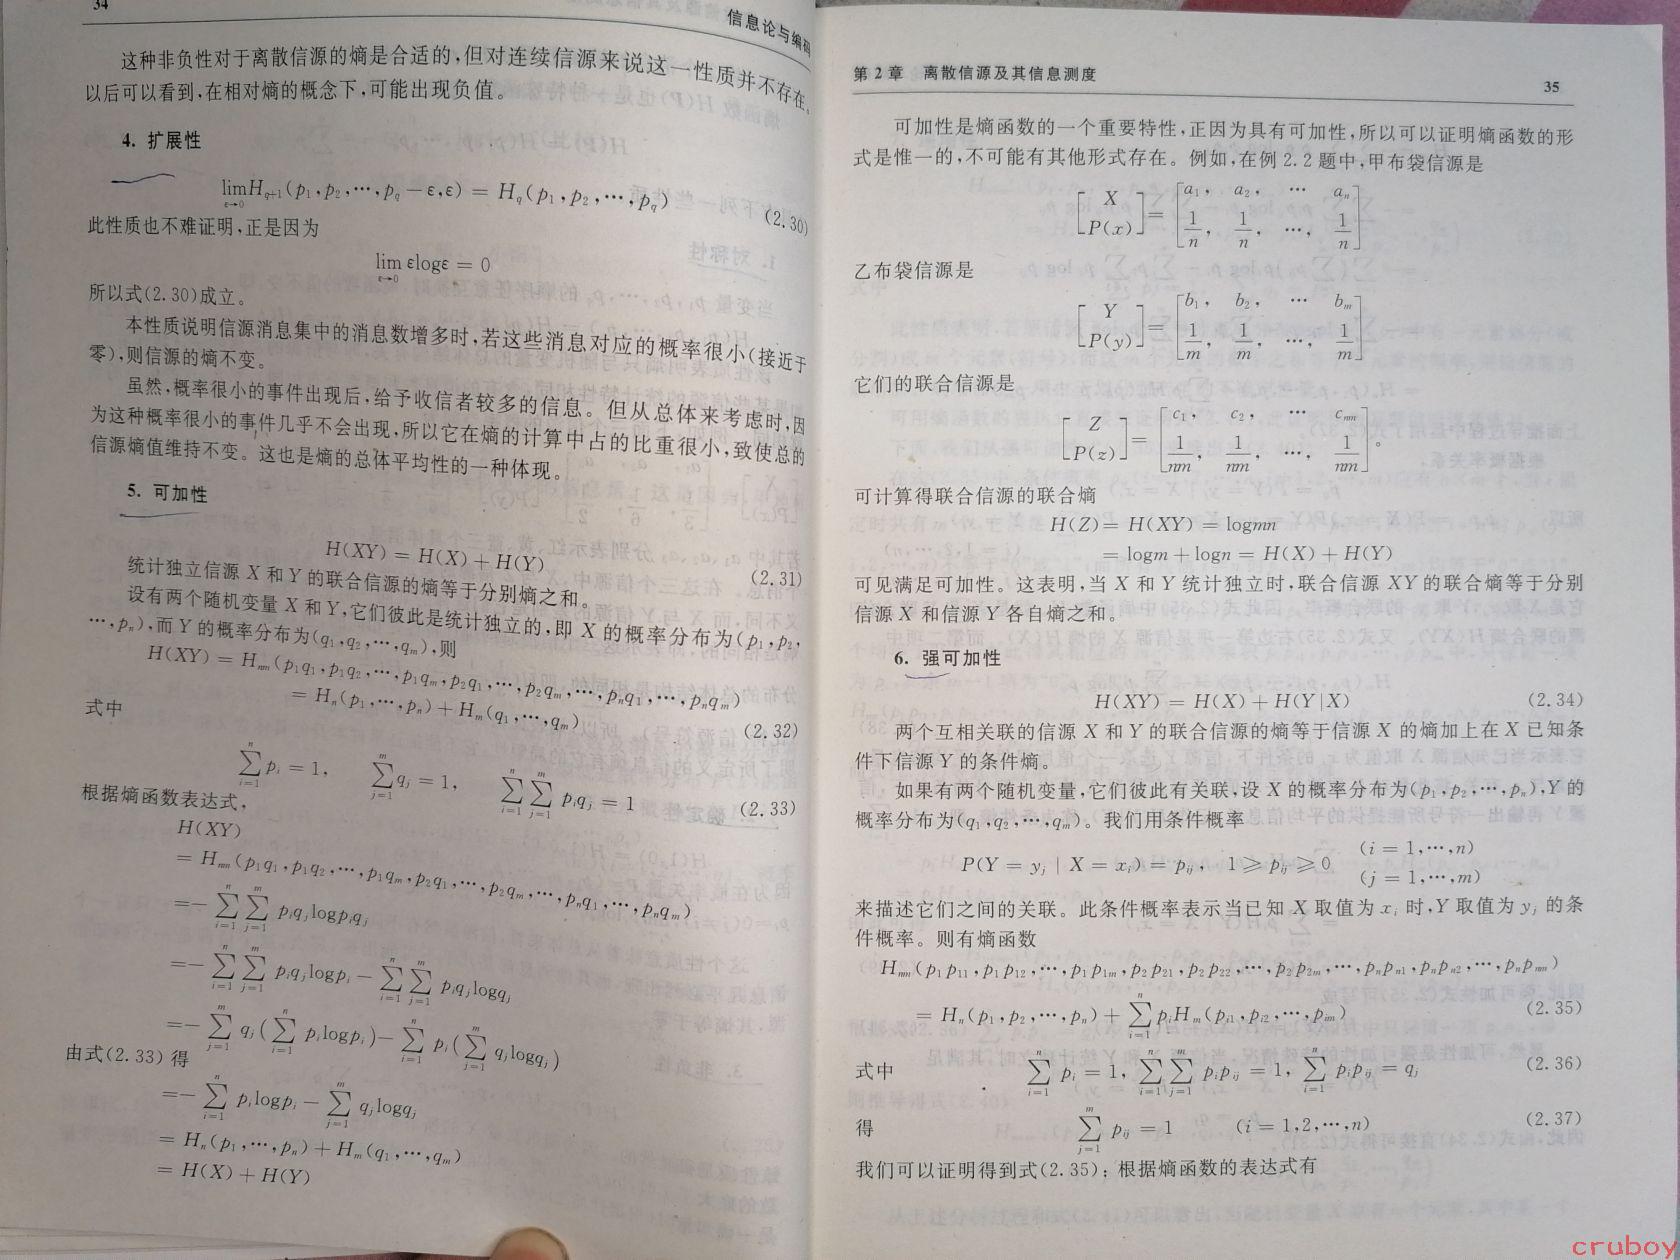 34
信息论与编码
这种非负性对于离散信源的熵是合适的,但对连续信源来说这一性质并不存在。
以后可以看到,在相对熵的概念下,可能出现负值。
4. 扩展性
lim_{ε→0} H_{q+1}(p₁,p₂,⋯,p_q−ε,ε) = H_q(p₁,p₂,⋯,p_q) (2.30)
此性质也不难证明,正是因为
lim_{ε→0} εlogε = 0
所以式(2.30)成立。
本性质说明信源消息集中的消息数增多时,若这些消息对应的概率很小(接近于
零),则信源的熵不变。
虽然,概率很小的事件出现后,给予收信者较多的信息。但从总体来考虑时,因
为这种概率很小的事件几乎不会出现,所以它在熵的计算中占的比重很小,致使总的
信源熵值维持不变。这也是熵的总体平均性的一种体现。
5. 可加性
H(XY) = H(X) + H(Y) (2.31)
统计独立信源 X 和 Y 的联合信源的熵等于分别熵之和。
设有两个随机变量 X 和 Y,它们彼此是统计独立的,即 X 的概率分布为(p₁,p₂,
⋯,pₙ),而 Y 的概率分布为(q₁,q₂,⋯,qₘ),则
H(XY) = Hₙₘ(p₁q₁,p₁q₂,⋯,p₁qₘ,p₂q₁,⋯,p₂qₘ,⋯,pₙq₁,⋯,pₙqₘ)
= Hₙ(p₁,⋯,pₙ) + Hₘ(q₁,⋯,qₘ) (2.32)
式中
∑_{i=1}^{n} pᵢ = 1, ∑_{j=1}^{m} qⱼ = 1, ∑_{i=1}^{n} ∑_{j=1}^{m} pᵢqⱼ = 1 (2.33)
根据熵函数表达式,
H(XY)
= Hₙₘ(p₁q₁,p₁q₂,⋯,p₁qₘ,p₂q₁,⋯,p₂qₘ,⋯,pₙq₁,⋯,pₙqₘ)
=− ∑_{i=1}^{n} ∑_{j=1}^{m} pᵢqⱼlogpᵢqⱼ
=− ∑_{i=1}^{n} ∑_{j=1}^{m} pᵢqⱼlogpᵢ − ∑_{i=1}^{n} ∑_{j=1}^{m} pᵢqⱼlogqⱼ
=− ∑_{j=1}^{m} qⱼ(∑_{i=1}^{n} pᵢlogpᵢ)− ∑_{i=1}^{n} pᵢ(∑_{j=1}^{m} qⱼlogqⱼ)
由式(2.33)得
=− ∑_{i=1}^{n} pᵢlogpᵢ − ∑_{j=1}^{m} qⱼlogqⱼ
= Hₙ(p₁,⋯,pₙ) + Hₘ(q₁,⋯,qₘ)
= H(X) + H(Y)
第 2 章 离散信源及其信息测度
35
可加性是熵函数的一个重要特性,正因为具有可加性,所以可以证明熵函数的形
式是惟一的,不可能有其他形式存在。例如,在例 2.2 题中,甲布袋信源是
[X P(x)] = [a₁, a₂, ⋯ aₙ; 1/n, 1/n, ⋯, 1/n]
乙布袋信源是
[Y P(y)] = [b₁, b₂, ⋯ bₘ; 1/m, 1/m, ⋯, 1/m]
它们的联合信源是
[Z P(z)] = [c₁, c₂, ⋯ cₙₘ; 1/nm, 1/nm, ⋯, 1/nm]。
可计算得联合信源的联合熵
H(Z)= H(XY) = logmn
= logm + logn = H(X) + H(Y)
可见满足可加性。这表明,当 X 和 Y 统计独立时,联合信源 XY 的联合熵等于分别
信源 X 和信源 Y 各自熵之和。
6. 强可加性
H(XY) = H(X) + H(Y|X) (2.34)
两个互相关联的信源 X 和 Y 的联合信源的熵等于信源 X 的熵加上在 X 已知条
件下信源 Y 的条件熵。
如果有两个随机变量,它们彼此有关联,设 X 的概率分布为(p₁,p₂,⋯,pₙ),Y 的
概率分布为(q₁,q₂,⋯,qₘ)。我们用条件概率
P(Y = yⱼ | X = xᵢ) = pᵢⱼ, 1 ≥ pᵢⱼ ≥ 0 (i = 1,⋯,n) (j = 1,⋯,m)
来描述它们之间的关联。此条件概率表示当已知 X 取值为 xᵢ 时,Y 取值为 yⱼ 的条
件概率。则有熵函数
Hₙₘ(p₁p₁₁,p₁p₁₂,⋯,p₁p₁ₘ,p₂p₂₁,p₂p₂₂,⋯,p₂p₂ₘ,⋯,pₙpₙ₁,pₙpₙ₂,⋯,pₙpₙₘ)
= Hₙ(p₁,p₂,⋯,pₙ) + ∑_{i=1}^{n} pᵢHₘ(pᵢ₁,pᵢ₂,⋯,pᵢₘ) (2.35)
式中 ∑_{i=1}^{n} pᵢ = 1, ∑_{i=1}^{n} ∑_{j=1}^{m} pᵢpᵢⱼ = 1, ∑_{i=1}^{n} pᵢpᵢⱼ = qⱼ (2.36)
得 ∑_{j=1}^{m} pᵢⱼ = 1 (i = 1,2,⋯,n) (2.37)
我们可以证明得到式(2.35);根据熵函数的表达式有
cruboy